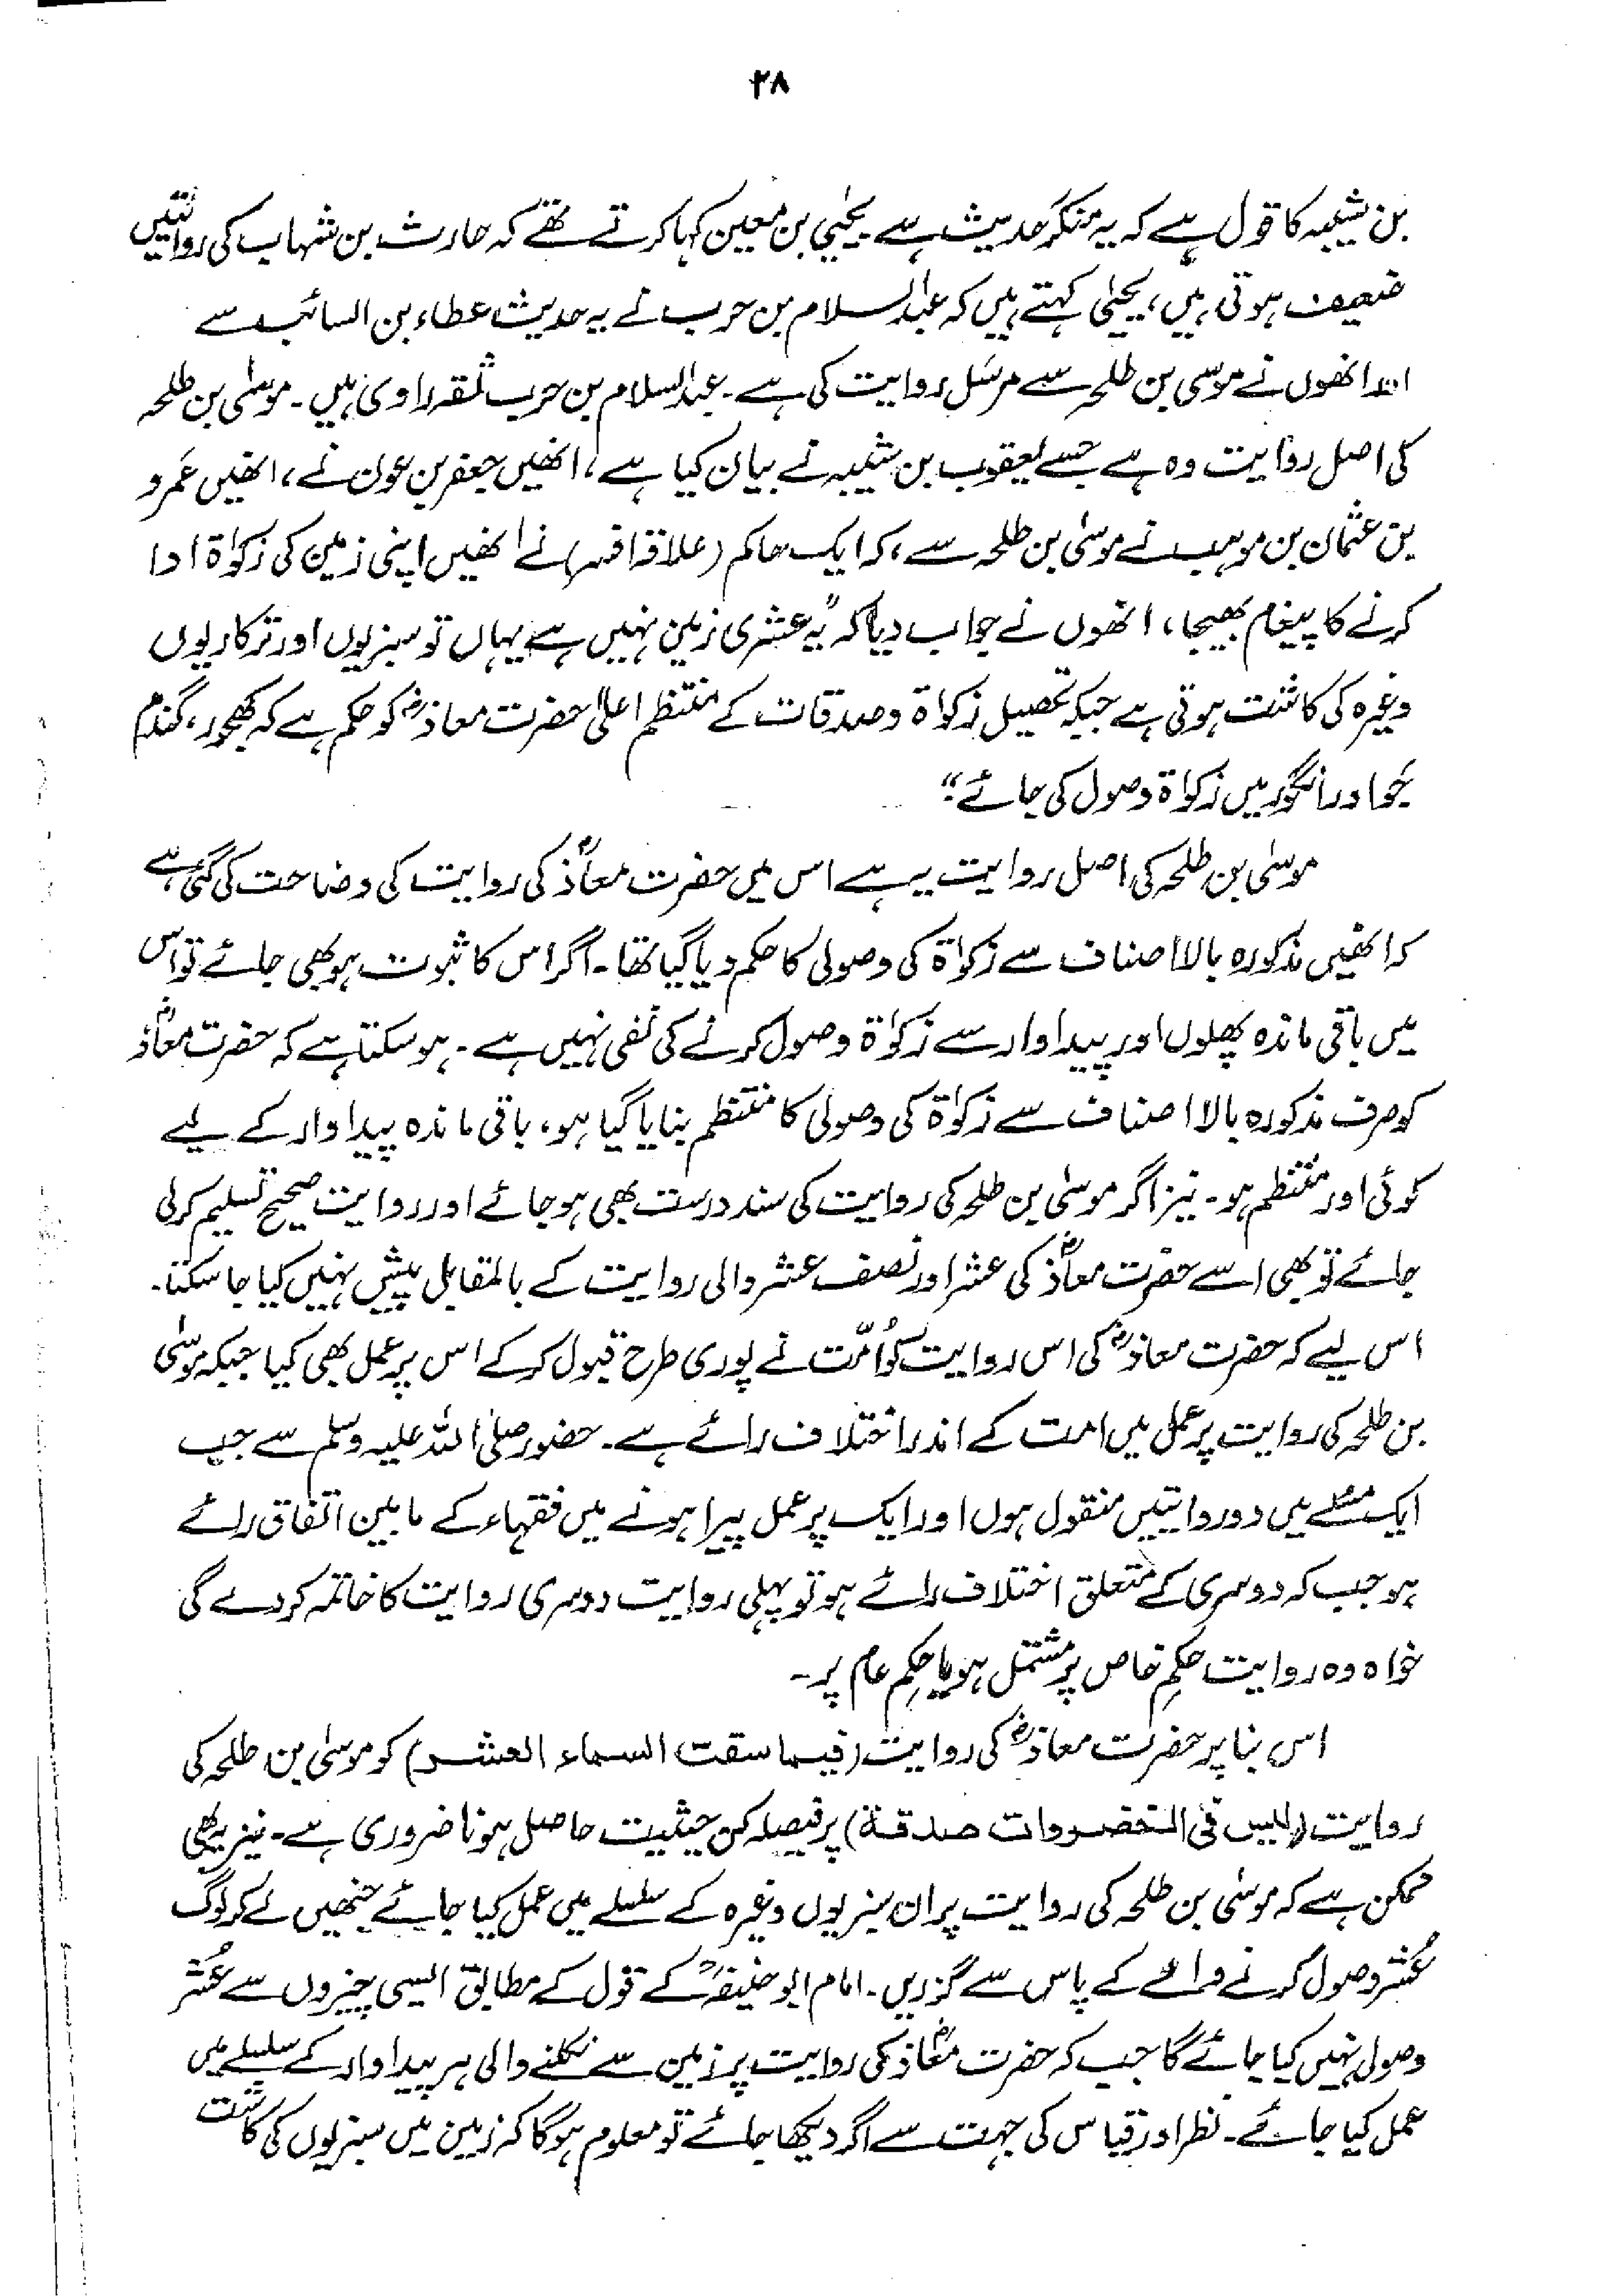 ۲۸
بن شیبہ کا قول ہے کہ یہ منکر حدیث ہے۔ یحییٰ بن معین کہا کرتے تھے کہ حارث بن شہاب کی روائتیں
ضعیف ہوتی ہیں، یحییٰ کہتے ہیں کہ عبدالسلام بن حرب نے یہ حدیث عطاء بن السائب سے
اور انھوں نے موسیٰ بن طلحہ سے مرسَل روایت کی ہے۔ عبدالسلام بن حرب ثقہ راوی ہیں۔ موسیٰ بن طلحہ
کی اصل روایت وہ ہے جسے یعقوب بن شیبہ نے بیان کیا ہے، انھیں جعفر بن عون نے، انھیں عَمرو
بن عثمان بن موہب نے موسیٰ بن طلحہ سے، کہ ایک حاکم (علاقہ افسر) نے انھیں اپنی زمین کی زکوٰۃ ادا
کرنے کا پیغام بھیجا، انھوں نے جواب دیا کہ "یہ عشری زمین نہیں ہے یہاں تو سبزیوں اور ترکاریوں
وغیرہ کی کاشت ہوتی ہے جبکہ تحصیل زکواۃ وصدقات کے منتظم اعلیٰ حضرت معاذؓ کو حکم ہے کہ کھجور، گندم
جَو اور انگور میں زکواۃ وصول کی جائے"۔
موسیٰ بن طلحہ کی اصل روایت یہ ہے اس میں حضرت معاذؓ کی روایت کی وضاحت کی گئی ہے
کہ انھیں مذکورہ بالا اصناف سے زکوٰۃ کی وصولی کا حکم دیا گیا تھا۔ اگر اس کا ثبوت ہو بھی جائے تو اس
میں باقی ماندہ پھلوں اور پیداوار سے زکوٰۃ وصول کرنے کی نفی نہیں ہے۔ ہو سکتا ہے کہ حضرت معاذؓ
کو صرف مذکورہ بالا اصناف سے زکوٰۃ کی وصولی کا منتظم بنایا گیا ہو، باقی ماندہ پیداوار کے لیے
کوئی اور منتظم ہو۔ نیز اگر موسیٰ بن طلحہ کی روایت کی سند درست بھی ہو جائے اور روایت صحیح تسلیم کر لی
جائے تو بھی اسے حضرت معاذؓ کی عشر اور نصف عشر والی روایت کے بالمقابل پیش نہیں کیا جا سکتا۔
اس لیے کہ حضرت معاذؓ کی اس روایت کو اُمّت نے پوری طرح قبول کر کے اس پر عمل بھی کیا جبکہ موسیٰ
بن طلحہ کی روایت پر عمل میں امت کے اندر اختلاف رائے ہے۔ حضور صلی اللہ علیہ وسلم سے جب
ایک مسئلے میں دو روایتیں منقول ہوں اور ایک پر عمل پیرا ہونے میں فقہاء کے مابین اتفاق رائے
ہو جب کہ دوسری کے متعلق اختلاف رائے ہو تو پہلی روایت دوسری روایت کا خاتمہ کر دے گی
خواہ وہ روایت حکمِ خاص پر مشتمل ہو یا حکمِ عام پر۔
اس بنا پر حضرت معاذؓ کی روایت (فیما سقت السماء العشر) کو موسیٰ بن طلحہ کی
روایت (لیس فی الخضروات صدقۃ) پر فیصلہ کن حیثیت حاصل ہونا ضروری ہے۔ نیز یہ بھی
ممکن ہے کہ موسیٰ بن طلحہ کی روایت پر ان سبزیوں وغیرہ کے سلسلے میں عمل کیا جائے جنھیں لے کر لوگ
عُشر وصول کرنے والے کے پاس سے گزریں۔ امام ابو حنیفہؒ کے قول کے مطابق ایسی چیزوں سے عُشر
وصول نہیں کیا جائے گا جب کہ حضرت معاذؓ کی روایت پر زمین سے نکلنے والی ہر پیداوار کے سلسلے میں
عمل کیا جائے۔ نظر اور قیاس کی جہت سے اگر دیکھا جائے تو معلوم ہوگا کہ زمین میں سبزیوں کی کاشت